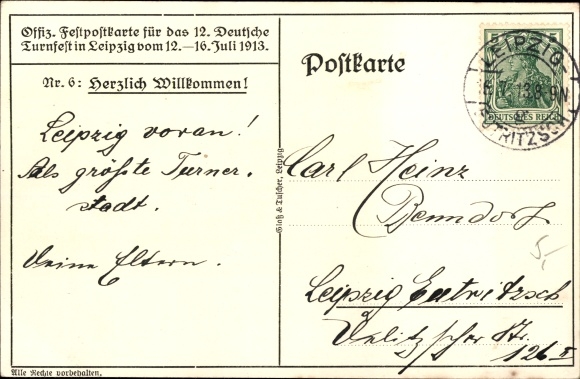 Offiz. Festpostkarte für das 12. Deutsche
Turnfest in Leipzig vom 12.—16. Juli 1913.
Nr. 6: Herzlich Willkommen!
Leipzig voran!
Als größte Turner-
stadt.
Deine Eltern.
Alle Rechte vorbehalten.
Glaß & Tuscher, Leipzig
Postkarte
5 5
DEUTSCHES REICH
LEIPZIG-
7. 13. 8-9N
EUTRITZSCH
Carl Heinz
Benndorf
Leipzig Eutritzsch
Delitzscher Str.
126 II
5,-